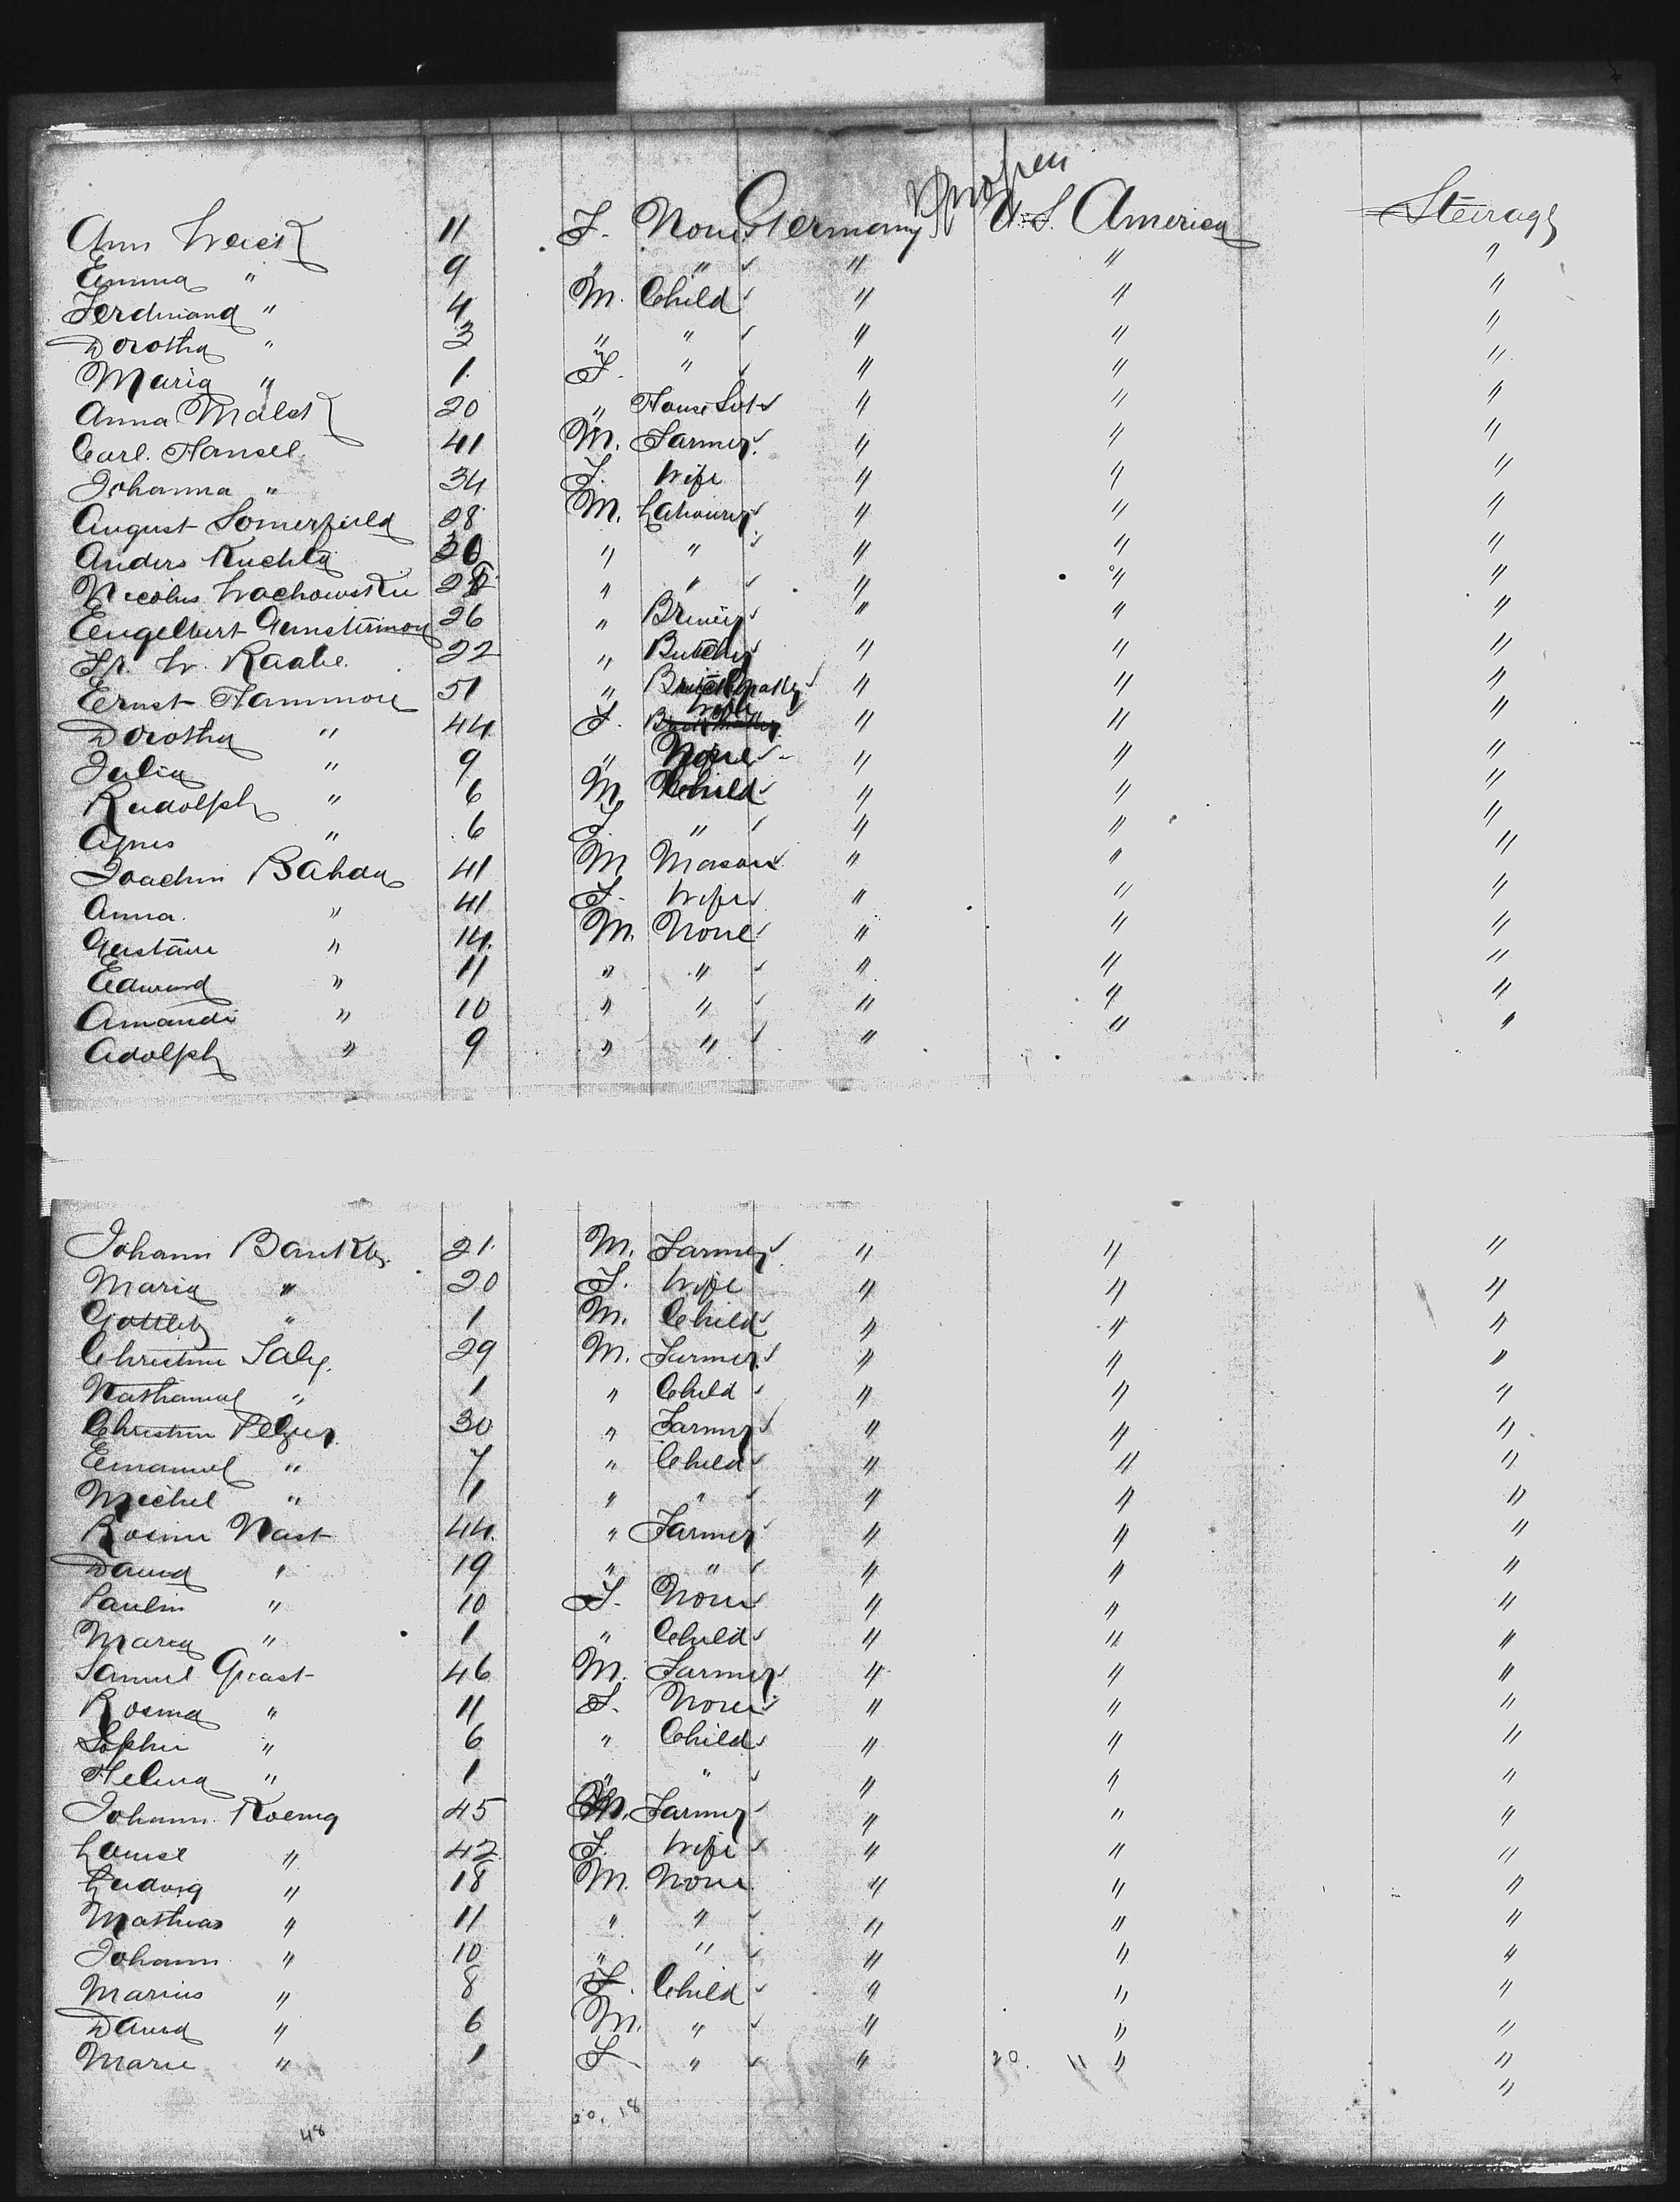 Ann Weick 11 F. None Germany U.S. America Steerage
Emma " 9 " " " " "
Ferdinand " 4 M. Child " " "
Dorothea " 3 " " " " "
Maria " 1 F. " " " "
Anna 20 " House Svt " " "
Carl. Hansel 41 M. Farmer " " "
Johanna " 34 F. Wife " " "
August Somerfield 28 M. Labourer " " "
Anders Kuchta 20 " " " " "
Nicolus Wachowskie 28 " " " " "
Engelbert 26 " Brewer " " "
Fr. W. Raabe. 22 " Butcher " " "
Ernst Hammou 51 " " " "
Dorothea " 44 F. Wife " " "
Julia " 9 " None " " "
Rudolph " 6 M. Child " " "
Agnes " 6 F. " " " "
Joachim Bahau 41 M Mason " " "
Anna. " 41 F. Wife " " "
Gustave " 14. M. None " " "
Edward " 11 " " " " "
Amandi " 10 " " " " "
Adolph " 9 " " "
Johann 21. M. Farmer " " "
Maria " 20 F. Wife " " "
Gottlieb " 1 M. Child " " "
Christine Saly. 29 M. Farmer " " "
Nathanael " 1 " Child " " "
Christine Pelzer. 30 " Farmer " " "
Emanuel " 7 " Child " " "
Michel " 1 " " " " "
Rosine Nast 44. " Farmer " " "
David " 19 " " " " "
Paulin " 10 F. None " " "
Maria " 1 " Child " " "
Samuel Grast 46 M. Farmer " " "
Rosina " 11 F. None " " "
Sophie " 6 " Child " " "
Helena " 1 " " " " "
Johann. Koenig 45 M. Farmer " " "
Louise " 42 F. Wife " " "
Ludwig " 18 M. None " " "
Mathias " 11 " " " " "
Johann " 10 " " " " "
Marius " 8 F. Child " " "
David " 6 M. " " " "
Marie " 1 F " " 20. 11 " "
"
48 30. 18